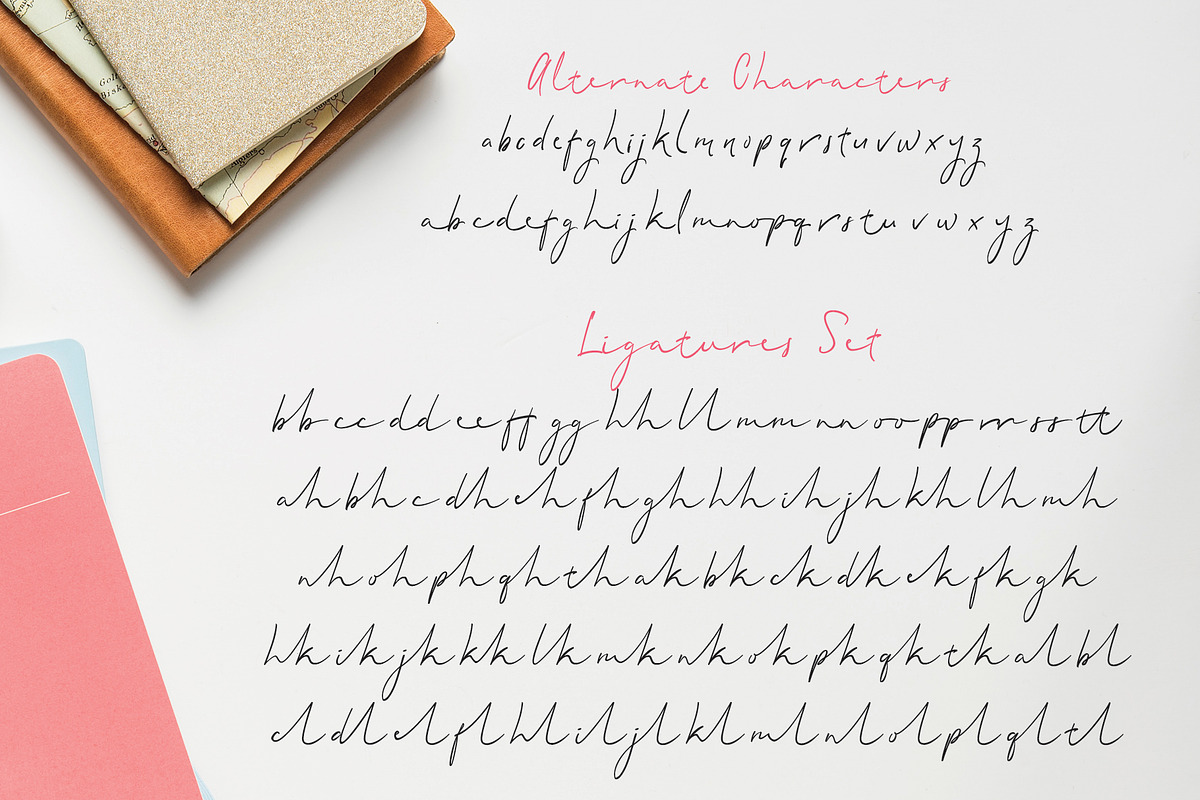 Alternate Characters
abcdefghijklmnopqrstuvwxyz
abcdefghijklmnopqrstuvwxyz
Ligatures Set
bbccddeeffgghhllmmnnoopprrsstt
ahbhcdhehfhghhhihjhkhlhmh
nhohphqhthakbkckdkekfkgk
hkikjkkklkmknkokpkqktkalbl
cldlelflhliljlklmlnlolplqltl